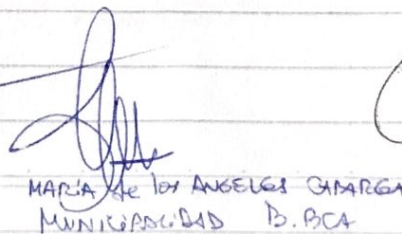 MARIA de los ANGELES
MUNICIPALIDAD B. BCA